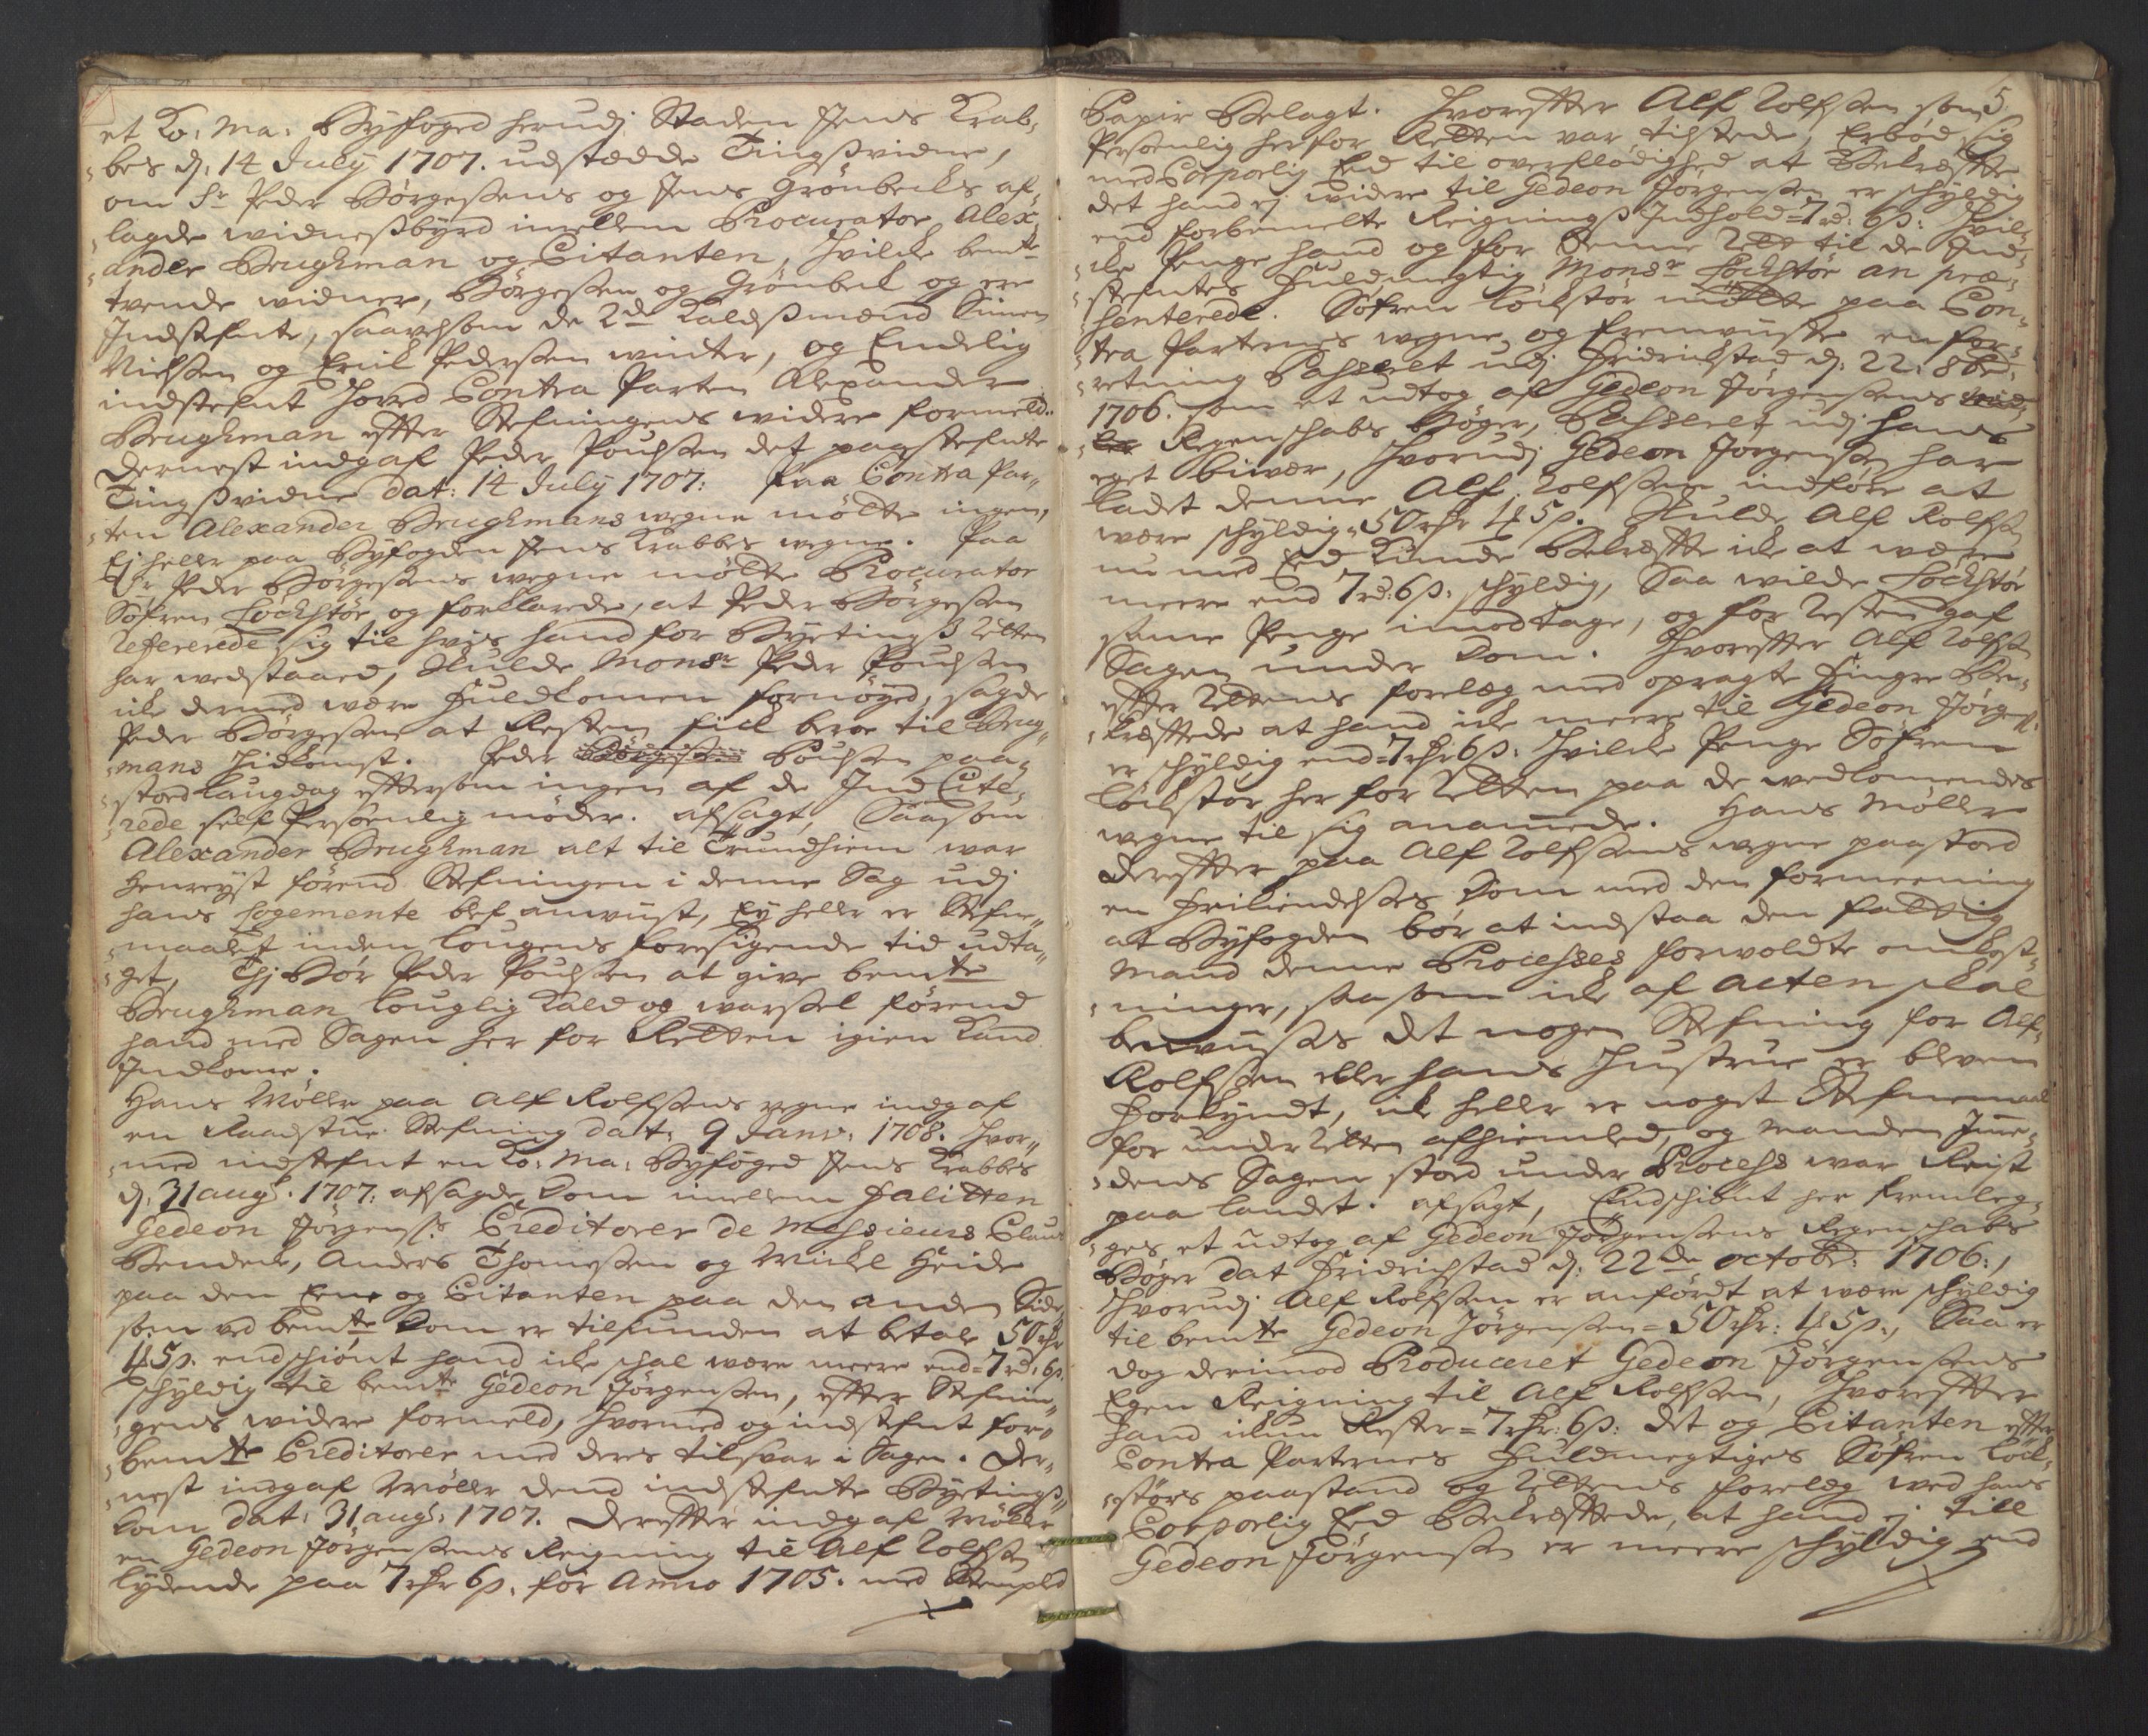 et Ko: Ma: Byfoged herudj Staden Jens Krab-
-bes d: 14 July 1707. udstædde Tingsvidne,
om Sr Peder Börgesens og Jens Grönbecks af-
-lagde widnesbyrd imellem Procurator Alex-
-ander Brughman og Citanten, hvilcke bemte
tvende widner, Börgesen og Grönbeck og ere
Indstefnte, saavelsom de 2de Kaldsmænd Simen
Nielsen og Erick Pedersen winter, og Endelig
indstefnt Hoved Contra Parten Alexander
Brughman effter Stefningens widere formeld..
Dernest indgaf Peder Pouhlsen det paastefnte
Tingsvidne dat: 14 July 1707: Paa Contra Par-
-ten Alexander Brughmans wegne mötte ingen,
Ej heller paa Byfogden Jens Krabbes wegne. Paa
Sr Peder Börgesens wegne mötte Procurator
Söfren Löckstör og forklarede, at Peder Börgesen
Refererede sig til hvis hand for Byetings Retten
har wedstaaed, skulde Monsr Peder Pouhlsen
icke dermed være fuldkomen fornöyed, sagde
Peder Börgesen at Resten fick beroe til Brug-
-mans hidkomst. Peder Börgesen Pouhlsen paa-
-stoed laugdag efftersom ingen af de Ind Cite-
-rede self Persoenlig möder. afsagt, Saasom
Alexander Brughman alt til Trundhiem war
henreyst förend Stefningen i denne Sag udj
hans Logemente blef anviist, Ey heller er Stefne-
-maalet inden lougens foresigende tid udta-
-get, Thj bör Peder Pouhlsen at give bemte
Brughman louglig Kald og warsel förend
hand med Sagen her for Retten igien kand
Indkome.
Hans Möller paa Alf Rolfsens vegne indgaf
en Raadstue Stefning dat: 9 Janv: 1708. hvor-
-med indstefnt en Ko: Ma: Byfoged Jens Krabbes
d: 31 aug: 1707: afsagde Dom imellem Falitten
Gedeon Jörgens: Creditorer de Messieurs Claus
Bendeck, Anders Thomesen og Michel Heide
paa den Eene og Citanten paa den anden Side,
som ved bemte Dom er tilfunden at betale 50 rhr
4 5s. endschiönt hand icke schal være meere end = 7 rd: 6s.
schyldig til bemte Gedeon Jörgensen, effter Stefnin-
-gens widere formeld, hvormed og indstefnt for-
-bemte Creditorer med deres tilsvar i Sagen. Der-
-nest indgaf Möller dend indstefnte Byetings-
Dom dat: 31 aug: 1707. Dereffter indgaf Möller
en Gedeon Jörgensens Reigning til Alf Rolfsen
lydende paa 7 rhr 6s. for Anno 1705. med Stempled
5.
Papir Belagt. Hvoreffter Alf Rolfsen som
Persoenlig herfor Retten var tilstede, Erböd sig
med Corporlig Eed til overflödighed at Bekræffte
det hand ej widere til Gedeon Jörgensen er schyldig
end forbemelte Reignings Indhold = 7 rd: 6s: hvil-
-cke Penge hand og for denne Rett til de Ind-
-stefntes fuldmegtig Monsr Löckstör an præ-
-senterede. Söfren Löckstör mötte paa Con-
-tra Parternes wegne, og fremviiste en for-
-retning Passeret udj Fridrichstad d: 22: 8br:
1706. som et udtog af Gedeon Jörgensens
Regenschabs Böger, Passeret udj hans
eget biwær, hvorudj Gedeon Jörgensen har
ladet denne Alf Rolfsen indföre at
være schyldig = 50 rhr 4 5s. Skulde Alf Rolfsen
nu med Eed kunde Bekræffte icke at være
meere end 7 rd: 6s: schyldig, Saa wilde Löckstör
same Penge imodtage, og for Resten gaf
Sagen under Dom. Hvoreffter Alf Rolfsen
effter Rettens forelæg med opragte Fingre Be-
-kræfftede at hand icke meere til Gedeon Jörgens:
er schyldig end = 7 rhr 6s: hvilcke Penge Söfren
Löckstör her for Retten paa de wedkomendes
wegne til sig anamede. Hans Möller
dereffter paa Alf Rolfsens wegne paastoed
en Frikiendelses Dom med den formeening
at Byfogden bör at indstaa den fattig
Mand denne Processes forvoldte omkost-
-ninger, saasom icke af Acten skal
bevises det nogen Stefning for Alf
Rolfsen eller hans Hustrue er bleven
forkyndt, icke heller er noget Stefnemaal
for under Retten afhiemled, og Manden Ime-
-dens Sagen stoed under Process war Reist
paa landet. afsagt, Endschiönt her fremleg-
-ges et udtog af Gedeon Jörgensens Regenschabs
Böger dat Fridrichstad d: 22de Octobr: 1706:,
hvorudj Alf Rolfsen er anfördt at være schyldig
til bemte Gedeon Jörgensen = 50 rhr: 4 5s:, Saa er
dog derimod Produceret Gedeon Jörgensens
Egen Reigning til Alf Rolfsen, hvoreffter
hand ickun Rester = 7 rhr: 6s: det og Citanten effter
Contra Parternes fuldmegtiges Söfren Löck-
-störs paastand og Rettens forelæg med hans
Corporlig Eed Bekræfftede, at hand ej till
Gedeon Jörgensen er meere schyldig end